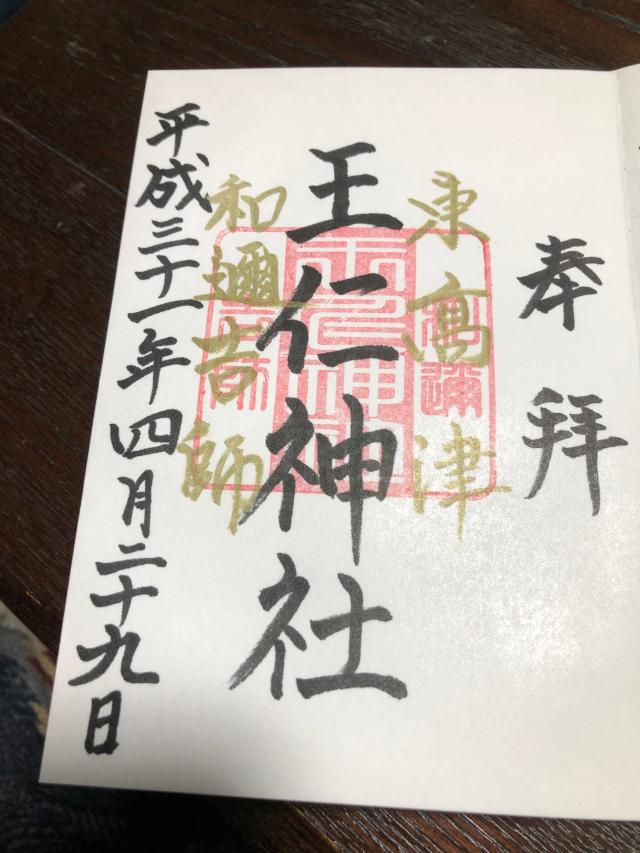 奉拝
東高津
王仁神社
和邇吉師
平成三十一年四月二十九日